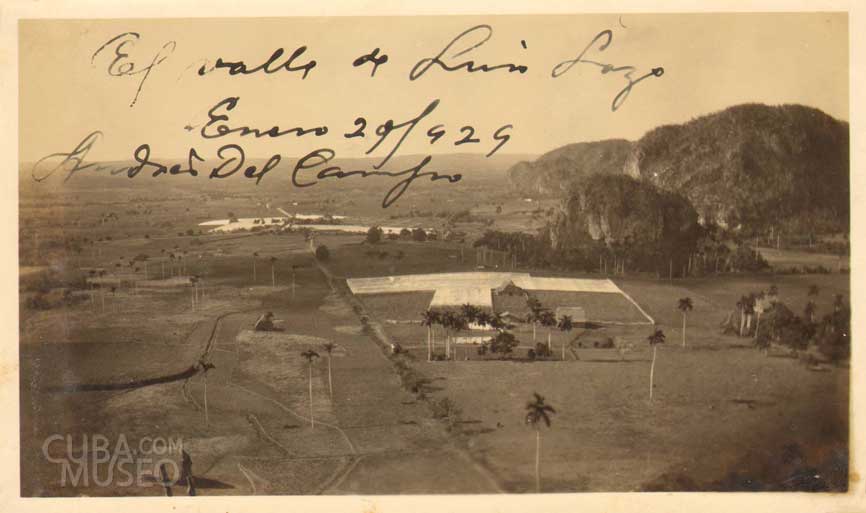 El valle de Luis Lazo
Enero 29/929
Andrés Del Campo
CUBA.COM
MUSEO